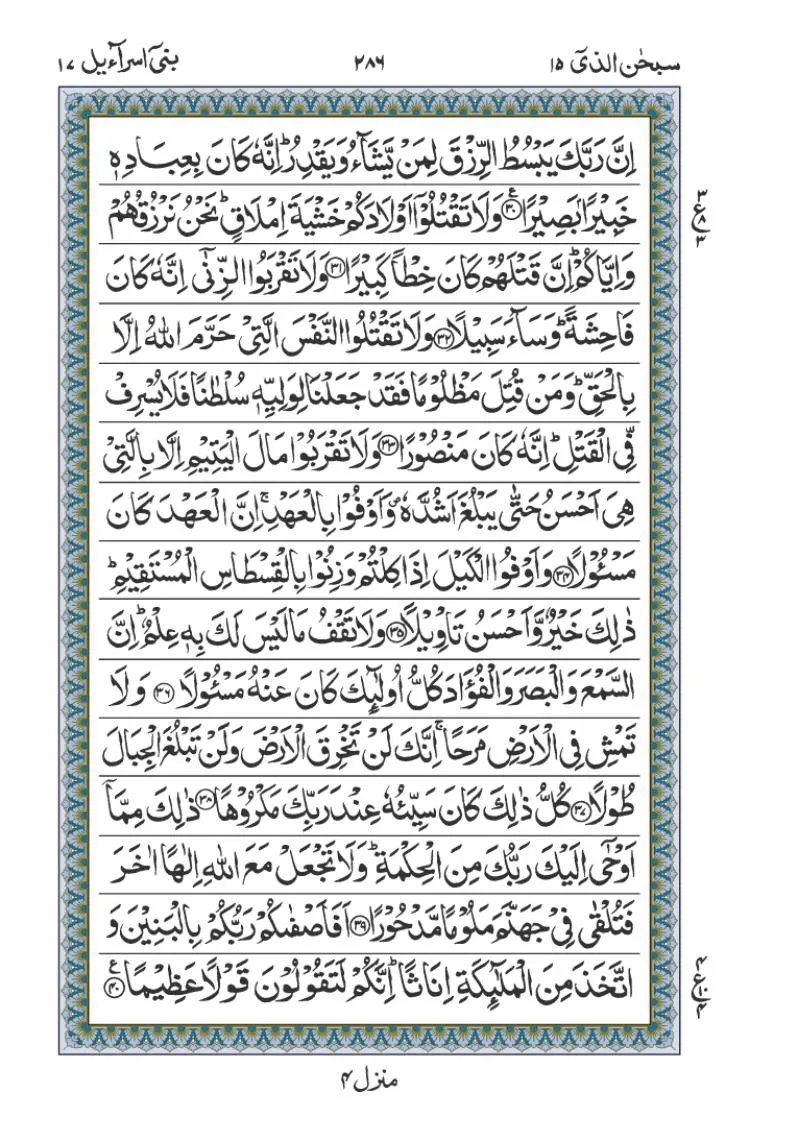 سبحٰن الذیٓ ۱۵
۲۸۶
بنیٓ اسرآءیل ۱۷
اِنَّ رَبَّكَ يَبْسُطُ الرِّزْقَ لِمَنْ يَّشَآءُ وَيَقْدِرُ ؕ اِنَّهٗ كَانَ بِعِبَادِهٖ
خَبِيْرًۢا بَصِيْرًا ﴿۳۰﴾ وَلَا تَقْتُلُوْۤا اَوْلَادَكُمْ خَشْيَةَ اِمْلَاقٍ ؕ نَحْنُ نَرْزُقُهُمْ
وَاِيَّاكُمْ ؕ اِنَّ قَتْلَهُمْ كَانَ خِطْاً كَبِيْرًا ﴿۳۱﴾ وَلَا تَقْرَبُوا الزِّنٰٓى اِنَّهٗ كَانَ
فَاحِشَةً ؕ وَسَآءَ سَبِيْلًا ﴿۳۲﴾ وَلَا تَقْتُلُوا النَّفْسَ الَّتِيْ حَرَّمَ اللّٰهُ اِلَّا
بِالْحَقِّ ؕ وَمَنْ قُتِلَ مَظْلُوْمًا فَقَدْ جَعَلْنَا لِوَلِيِّهٖ سُلْطٰنًا فَلَا يُسْرِفْ
فِّي الْقَتْلِ ؕ اِنَّهٗ كَانَ مَنْصُوْرًا ﴿۳۳﴾ وَلَا تَقْرَبُوْا مَالَ الْيَتِيْمِ اِلَّا بِالَّتِيْ
هِيَ اَحْسَنُ حَتّٰى يَبْلُغَ اَشُدَّهٗ ۪ وَاَوْفُوْا بِالْعَهْدِ ۚ اِنَّ الْعَهْدَ كَانَ
مَسْـُٔوْلًا ﴿۳۴﴾ وَاَوْفُوا الْكَيْلَ اِذَا كِلْتُمْ وَزِنُوْا بِالْقِسْطَاسِ الْمُسْتَقِيْمِ ؕ
ذٰلِكَ خَيْرٌ وَّاَحْسَنُ تَاْوِيْلًا ﴿۳۵﴾ وَلَا تَقْفُ مَا لَيْسَ لَكَ بِهٖ عِلْمٌ ؕ اِنَّ
السَّمْعَ وَالْبَصَرَ وَالْفُؤَادَ كُلُّ اُولٰٓئِكَ كَانَ عَنْهُ مَسْـُٔوْلًا ﴿۳۶﴾ وَلَا
تَمْشِ فِي الْاَرْضِ مَرَحًا ۚ اِنَّكَ لَنْ تَخْرِقَ الْاَرْضَ وَلَنْ تَبْلُغَ الْجِبَالَ
طُوْلًا ﴿۳۷﴾ كُلُّ ذٰلِكَ كَانَ سَيِّئُهٗ عِنْدَ رَبِّكَ مَكْرُوْهًا ﴿۳۸﴾ ذٰلِكَ مِمَّاۤ
اَوْحٰۤى اِلَيْكَ رَبُّكَ مِنَ الْحِكْمَةِ ؕ وَلَا تَجْعَلْ مَعَ اللّٰهِ اِلٰهًا اٰخَرَ
فَتُلْقٰى فِيْ جَهَنَّمَ مَلُوْمًا مَّدْحُوْرًا ﴿۳۹﴾ اَفَاَصْفٰىكُمْ رَبُّكُمْ بِالْبَنِيْنَ وَ
اتَّخَذَ مِنَ الْمَلٰٓئِكَةِ اِنَاثًا ؕ اِنَّكُمْ لَتَقُوْلُوْنَ قَوْلًا عَظِيْمًا ﴿۴۰﴾ ع
۳ ع ۸ ۳
۴ ع ۱۰ ۴
منزل ۴